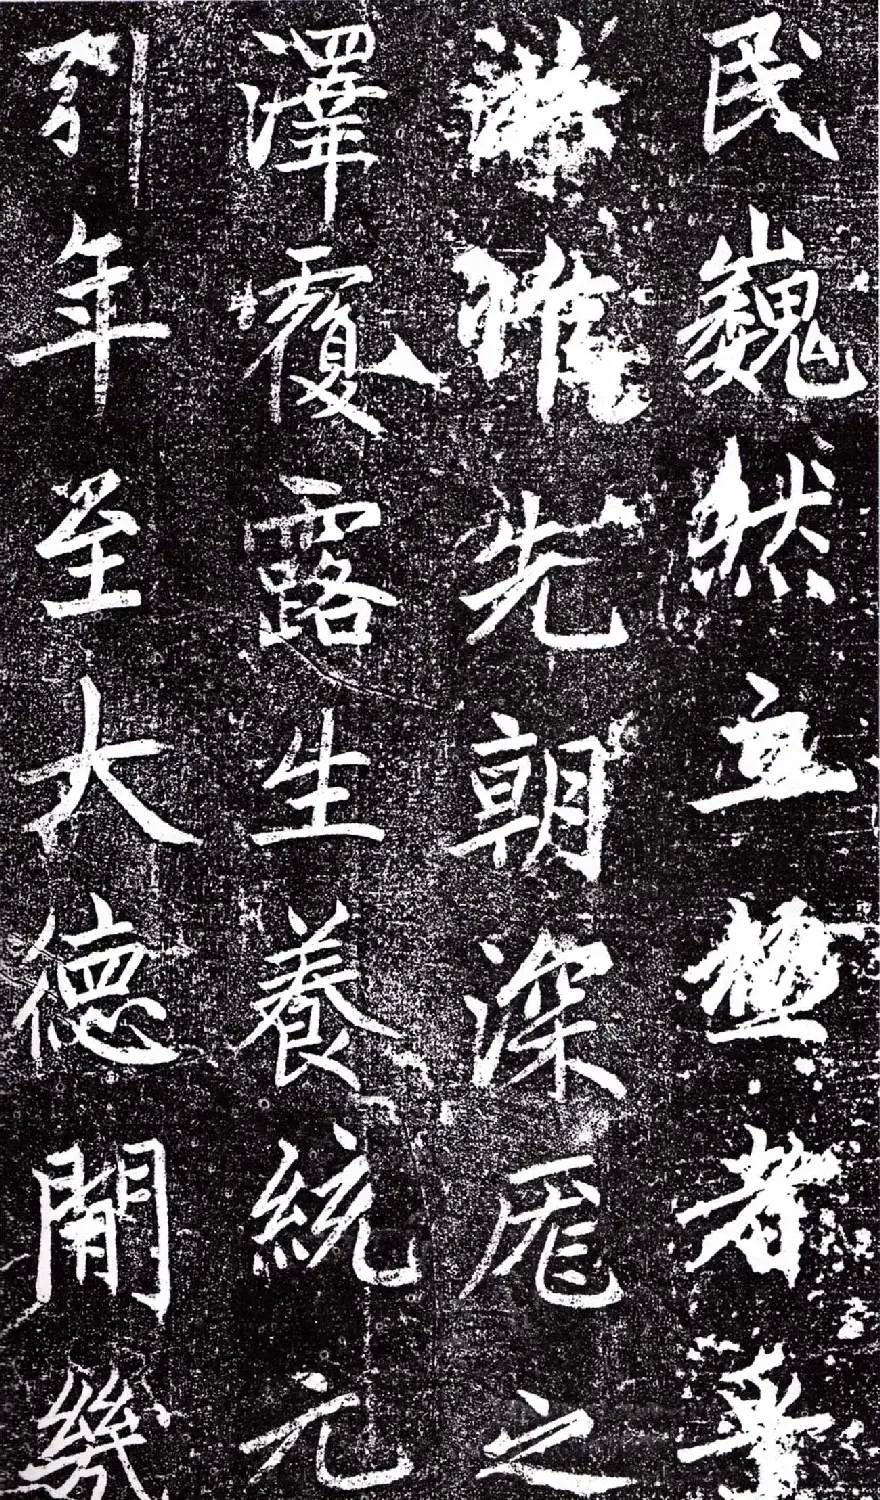 民巍然立極者
惟先朝深厖之
澤覆露生養統元
引年至大德閒幾